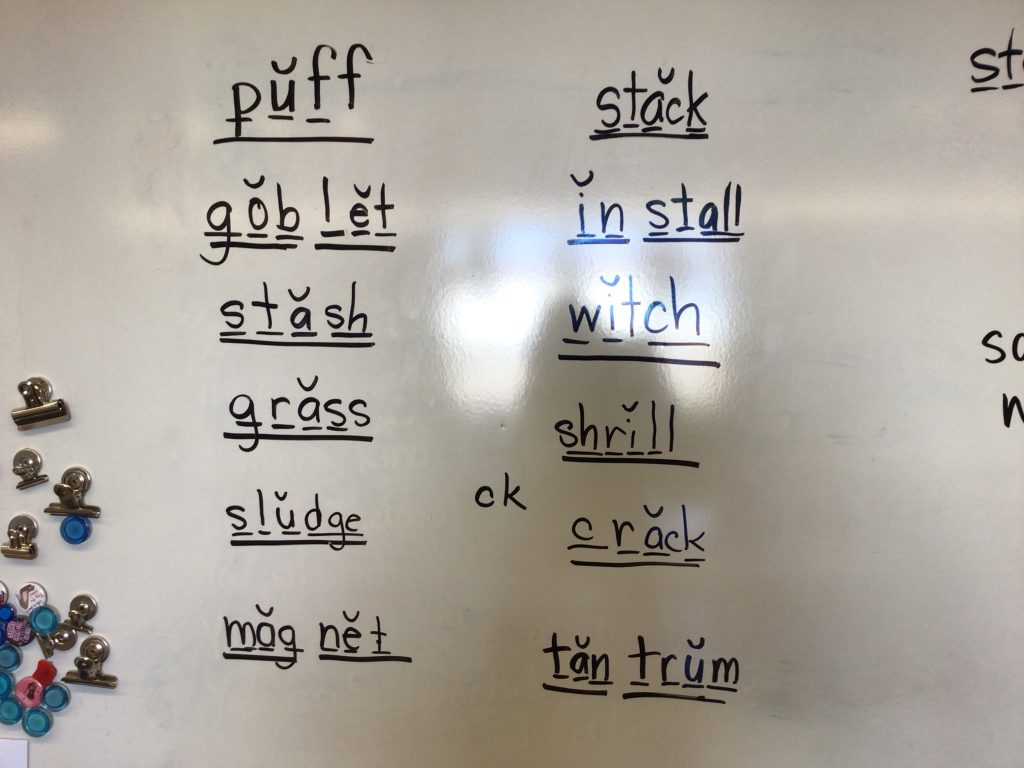 pŭff
gŏb lĕt
stăsh
grăss
slŭdge
măg nĕt
stăck
ĭn stall
wĭtch
shrĭll
ck
crăck
tăn trŭm